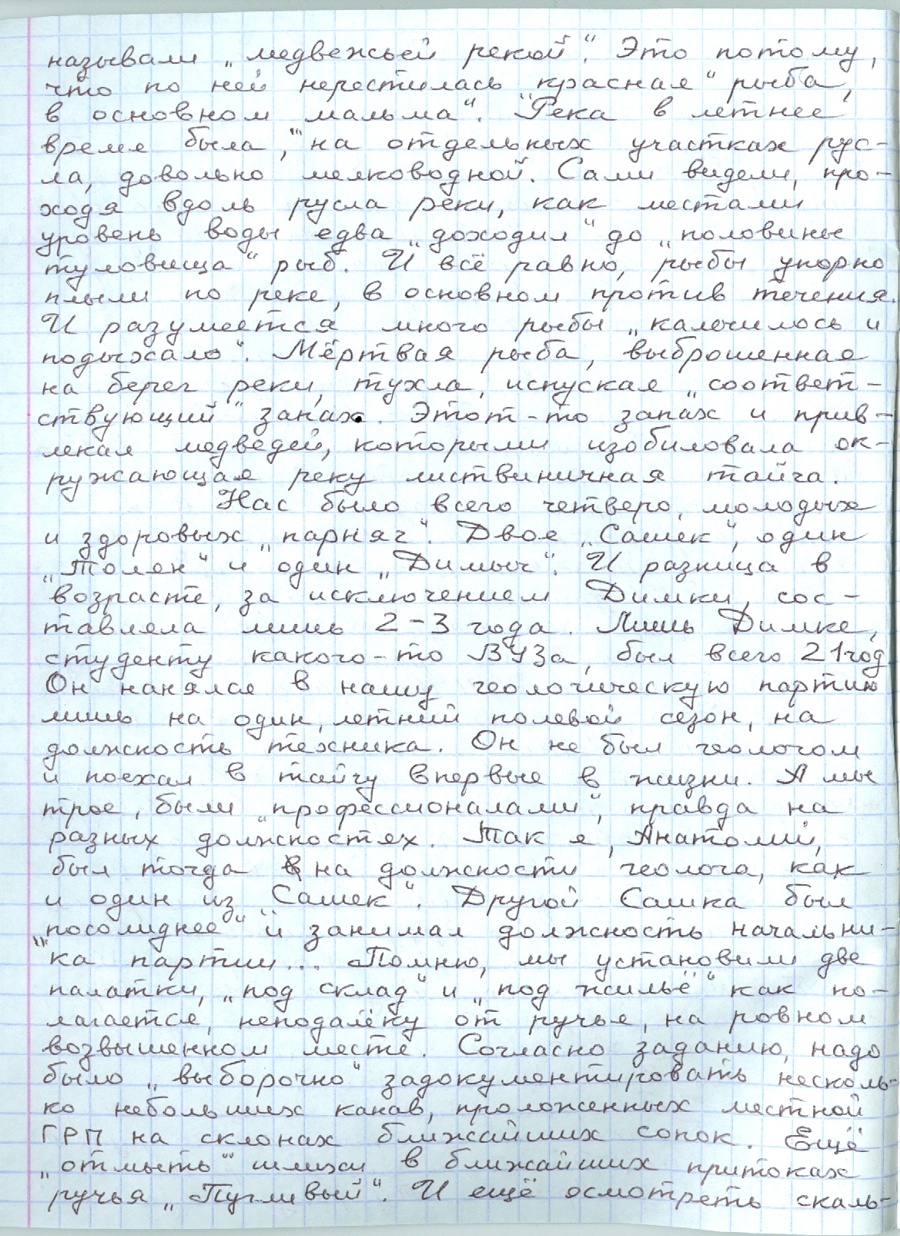 называли „медвежьей рекой". Это потому,
что по ней нерестилась „красная" рыба,
в основном „мальма". Река в летнее
время была, на отдельных участках рус-
ла, довольно мелководной. Сами видели, про-
ходя вдоль русла реки, как местами
уровень воды едва „доходил" до „половины
туловища" рыб. И всё равно, рыбы упорно
плыли по реке, в основном против течения.
И разумеется много рыбы „калечилось и
подыхало". Мёртвая рыба, выброшенная
на берег реки, тухла, испуская „соответ-
ствующий" запах. Этот-то запах и прив-
лекал медведей, которыми изобиловала ок-
ружающая реку лиственичная тайга.
Нас было всего четверо, молодых
и здоровых „парняг". Двое „Сашек", один
„Толян" и один „Димыч". И разница в
возрасте, за исключением Димки, сос-
тавляла лишь 2-3 года. Лишь Димке,
студенту какого-то ВУЗа, был всего 21 год.
Он нанялся в нашу геологическую партию
лишь на один, летний полевой сезон, на
должность техника. Он не был геологом
и поехал в тайгу впервые в жизни. А мы
трое, были „профессионалами", правда на
разных должностях. Так я, Анатолий,
был тогда на должности геолога, как
и один из „Сашек". Другой Сашка был
„посолиднее" и занимал должность начальни-
ка партии... Помню, мы установили две
палатки, „под склад" и „под жильё" как по-
лагается, неподалёку от ручья, на ровном
возвышенном месте. Согласно заданию, надо
было „выборочно" задокументировать несколь-
ко небольших канав, проложенных местной
ГРП на склонах ближайших сопок. Ещё
„отмыть" шлихи в ближайших притоках
ручья „Пугливый". И ещё осмотреть скаль-